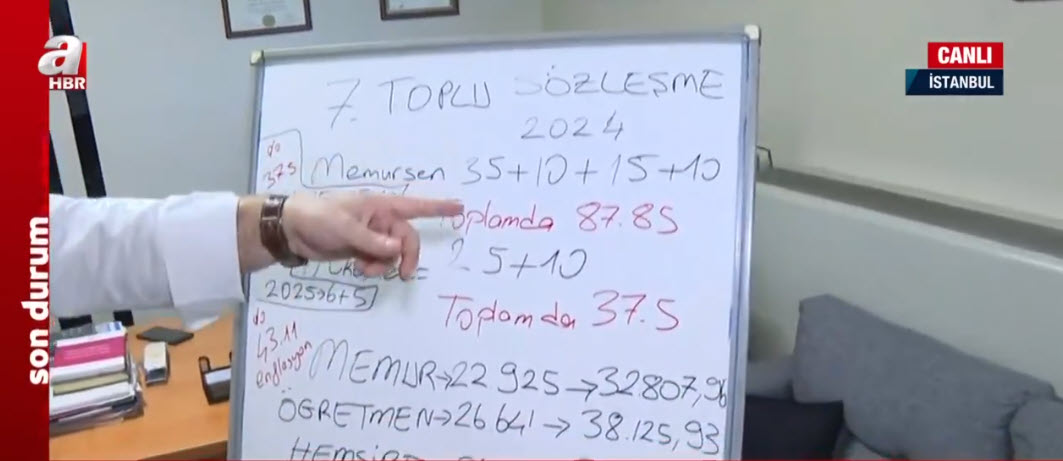 a
HBR
son durum
CANLI
İSTANBUL
7. TOPLU SÖZLEŞME
2024
do
37.5
Memursen 35+10+15+10
Toplamda 87.85
= 25+10
2025→6+5
Toplamda 37.5
do
43.11
enflasyon
MEMUR→22 925→32807,96
ÖĞRETMEN→26 641→38.125,93